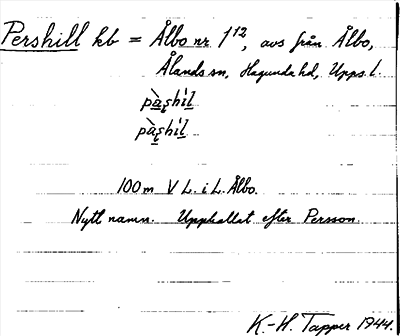 Pershill kb = Ålbo nr 1¹², avs från Ålbo,
Ålands sn, Hagunda hd, Upps. l.
pæ̀ṣhíl
pæ̀ṣhíl
100 m V L. i L. Ålbo.
Nytt namn. Uppkallat efter Persson
K.-H. Tapper 1944.